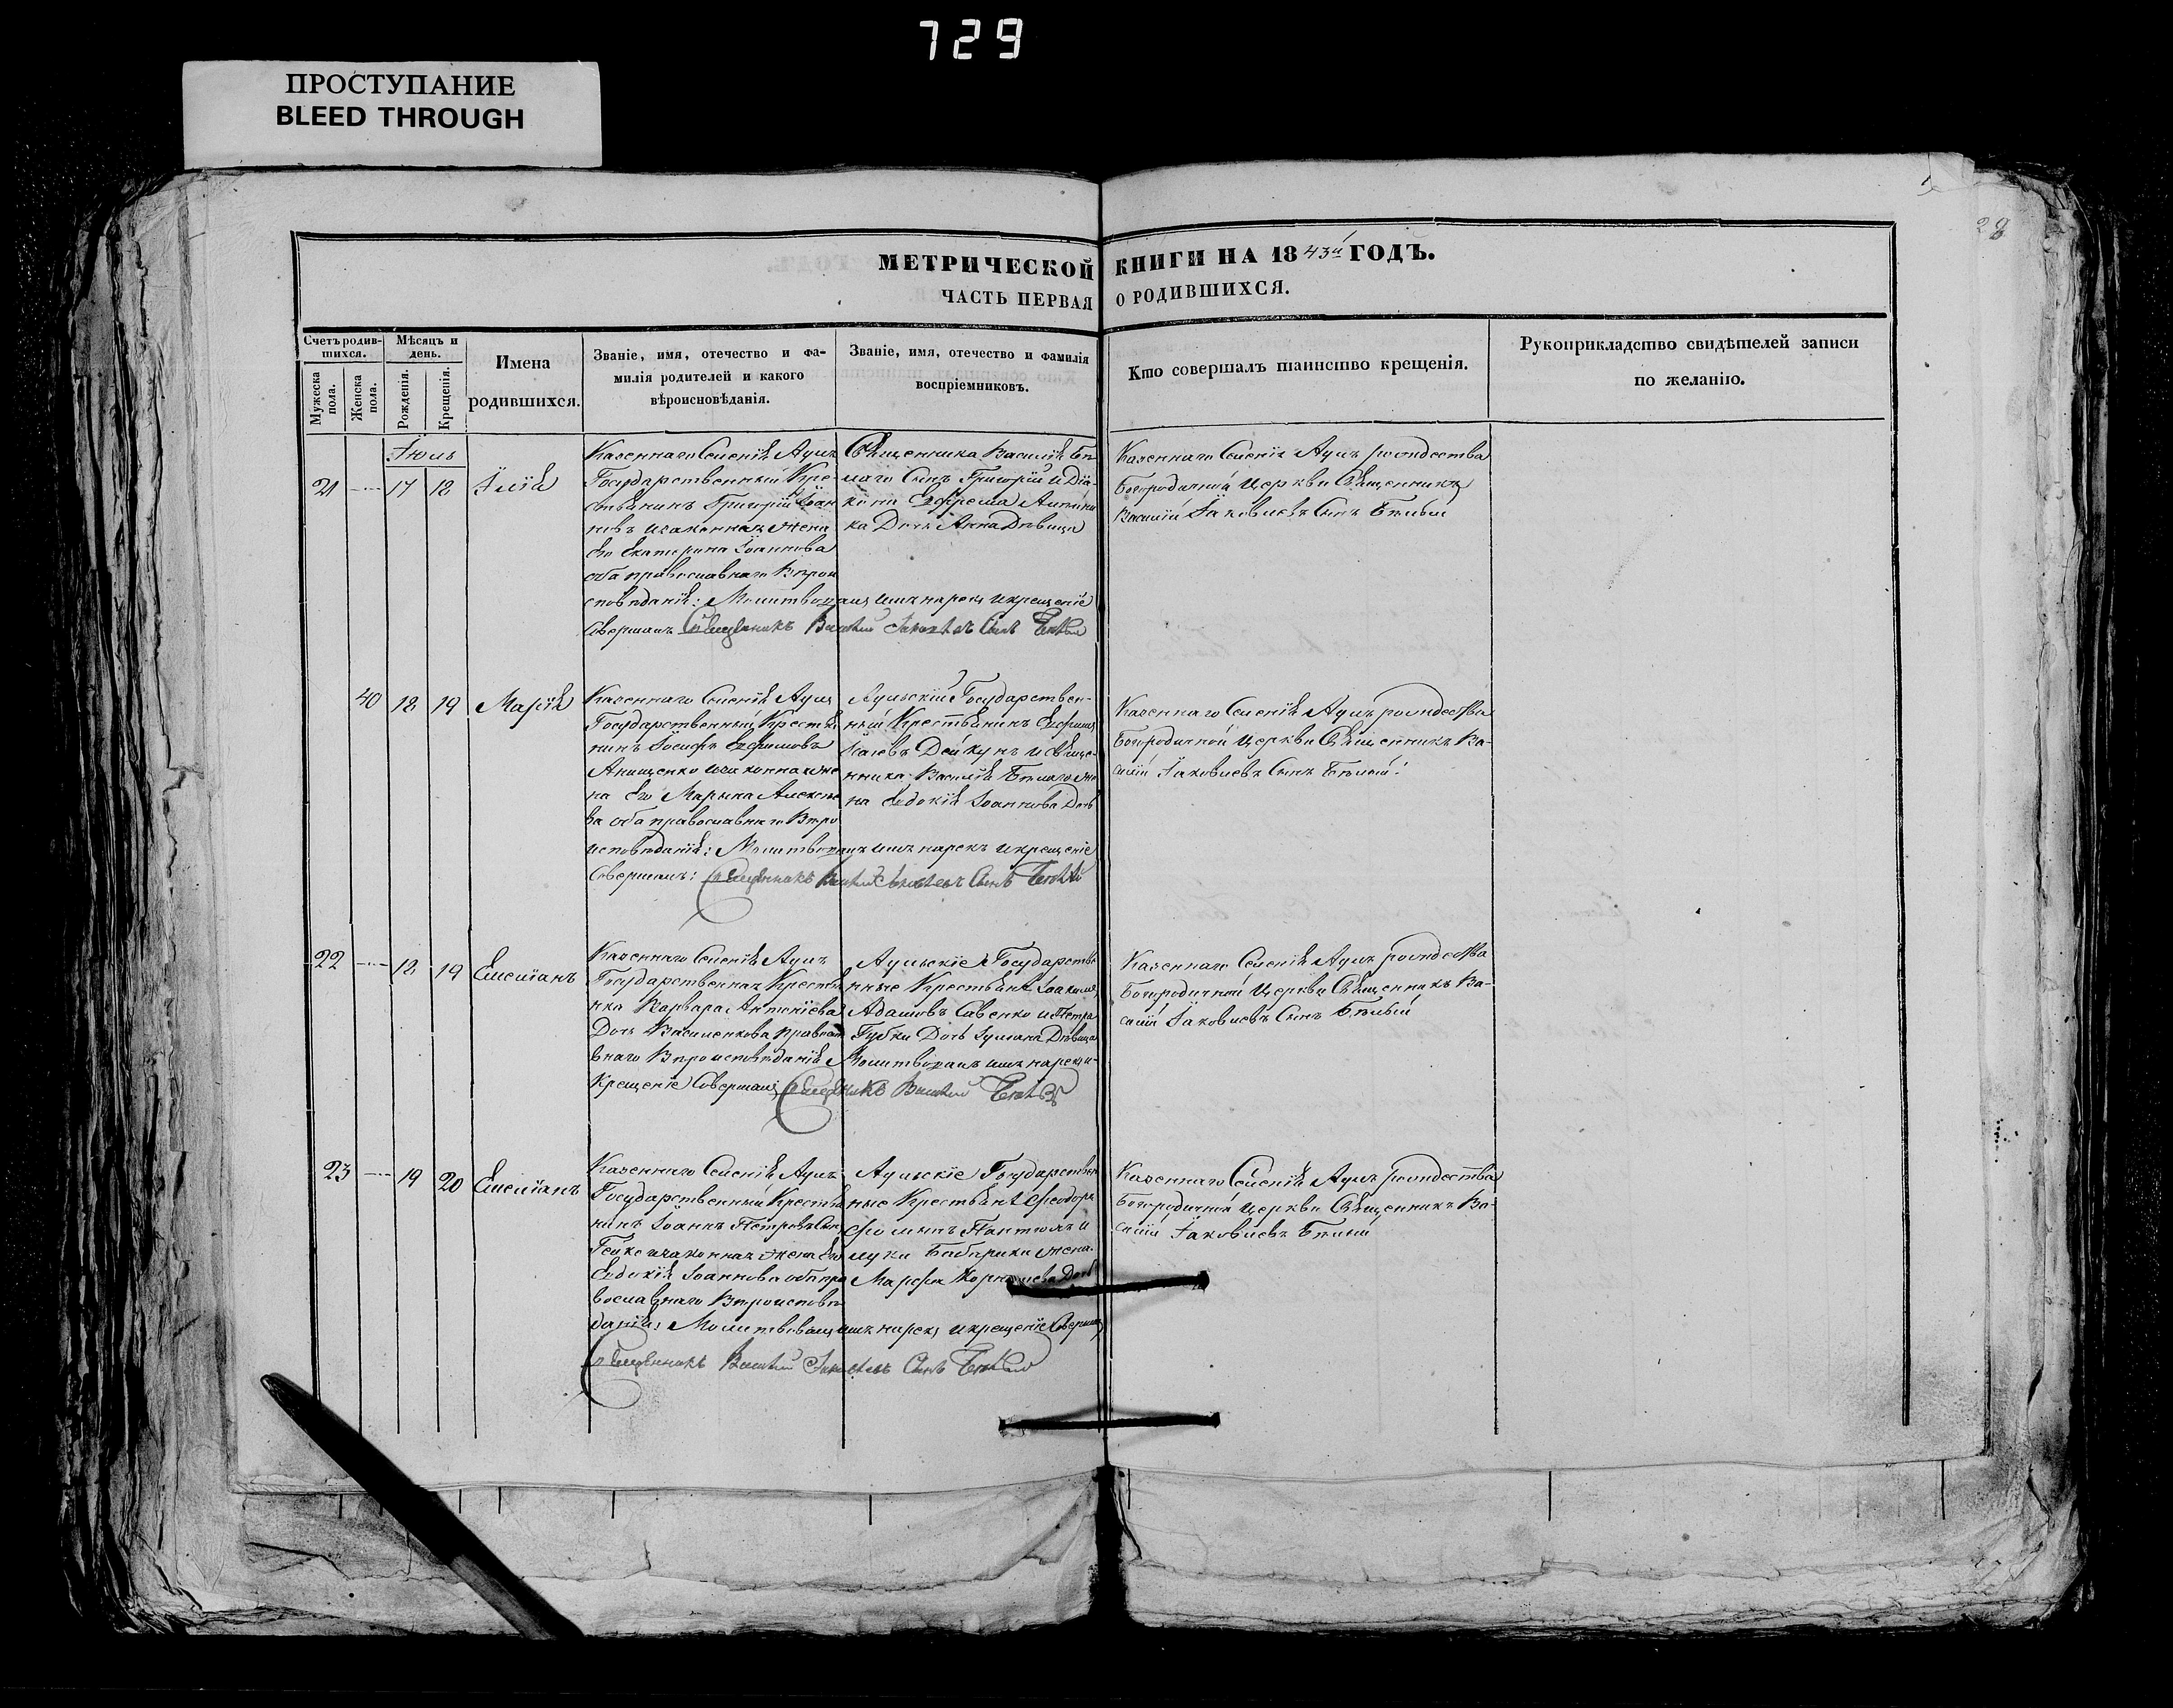 729
ПРОСТУПАНИЕ
BLEED THROUGH
28
МЕТРИЧЕСКОЙ КНИГИ НА 1843й ГОДЪ.
ЧАСТЬ ПЕРВАЯ О РОДИВШИХСЯ.
Счетъ родив-
шихся.
Мужеска
пола.
Женска
пола.
Мѣсяцъ и
день.
Рожденія.
Крещенія.
Имена
родившихся.
Званіе, имя, отечество и фа-
милія родителей и какого
вѣроисновѣданія.
Званіе, имя, отечество и фамилія
воспріемниковъ.
Кто совершалъ таинство крещенія.
Рукоприкладство свидѣтелей записи
по желанію.
Іюль
21
17
18
Іилія
Казеннаго Селенія Аулъ
Государственный Кре-
стьянинъ Григорій Іоан
новъ изаконная жена
Его Екатерина Іоаннова
оба православнаго Вѣрои
сповѣданія: Молитвовалъ имъ нарекъ икрещеніе
Совершалъ Священникъ Василій Іаковлевъ Сынъ Бѣлый
Священника Василія Бѣ
лаго Сынъ Григорій и Діа
кона Ефрема
ка Дочь Анна Дѣвица
Казеннаго Селенія Аулъ рождества
Богородичной Церкви Священникъ
Василій Іаковлевъ Сынъ Бѣлый
40
18
19
Марія
Казеннаго Селенія Аулъ
Государственный Крестья
нинъ Іосифъ Ефимовъ
Анищенко изаконная же
на Его Марьяна Алексѣе
ва оба православнаго Вѣро
исповѣданія: Молитвовалъ имъ нарекъ икрещеніе
Совершалъ: Священникъ Василій Іаковлевъ Сынъ Бѣлый
Аульскій Государствен-
ный Крестьянинъ Ефимъ
Дейкунъ и Свяще-
нника Василія Бѣлаго же
на Евдокія Іоаннова Дочь
Казеннаго Селенія Аулъ рождества
Богородичной Церкви Священникъ Ва-
силій Іаковлевъ Сынъ Бѣлый:
22
18
19
Емеліанъ
Казеннаго Селенія Аулъ
Государственная Крестья
нка Варвара Антоніева
Дочь Василенкова правосла
внаго Вѣроисповѣданія Молитвовалъ имъ нарекъ и-
Крещеніе Совершалъ Священникъ Василій Бѣлый
Аульскіе Государстве
нные Крестьяне Іоакимъ
Адамовъ Савенко и Петра
Губки Дочь Іуліана Дѣвица
Казеннаго Селенія Аулъ рождества
Богородичной Церкви Священникъ Ва-
силій Іаковлевъ Сынъ Бѣлый
23
19
20
Емеліанъ
Казеннаго Селенія Аулъ
Государственный Крестья
нинъ Іоаннъ Петровъ Сынъ
изаконная жена Его
Евдокія Іоаннова оба пра
вославнаго Вѣроисповѣ
данія: Молитвовалъ имъ нарекъ икрещеніе Совершалъ
Священникъ Василій Іаковлевъ Сынъ Бѣлый
Аульскіе Государствен
ные Крестьяне Феодоръ
Фоминъ и
луки Бабарики жена
Марфа Дочь
Казеннаго Селенія Аулъ рождества
Богородичной Церкви Священникъ Ва-
силій Іаковлевъ Бѣлый